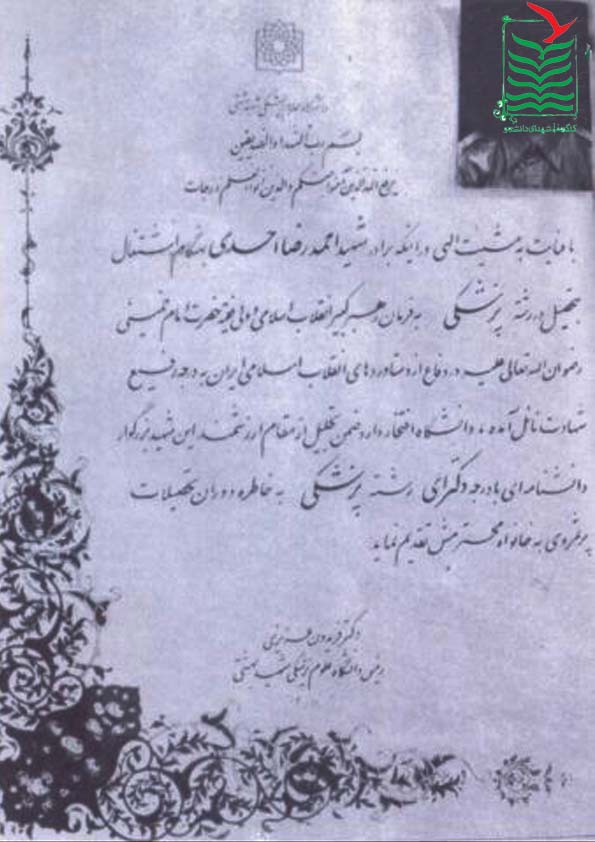 کنگره شهدای دانشجو
دانشگاه علوم پزشکی شهید بهشتی
بسم رب الشهداء والصدیقین
یرفع الله الذین آمنوا منکم والذین اوتوا العلم درجات
با عنایت به مشیت الهی و اینکه برادر شهید احمد رضا احدی هنگام اشتغال
بتحصیل در رشته پزشکی به فرمان رهبر کبیر انقلاب اسلامی و ولی فقیه حضرت امام خمینی
رضوان الله تعالی علیه در دفاع از دستاوردهای انقلاب اسلامی ایران به درجه رفیع
شهادت نائل آمده، دانشگاه افتخار دارد ضمن تجلیل از مقام ارزشمند این شهید بزرگوار
دانشنامه ای با درجه دکترای رشته پزشکی به خاطره دوران تحصیلات
پرفروغ وی به خانواده محترمش تقدیم نماید
دکتر فریدون عزیزی
رئیس دانشگاه علوم پزشکی شهید بهشتی